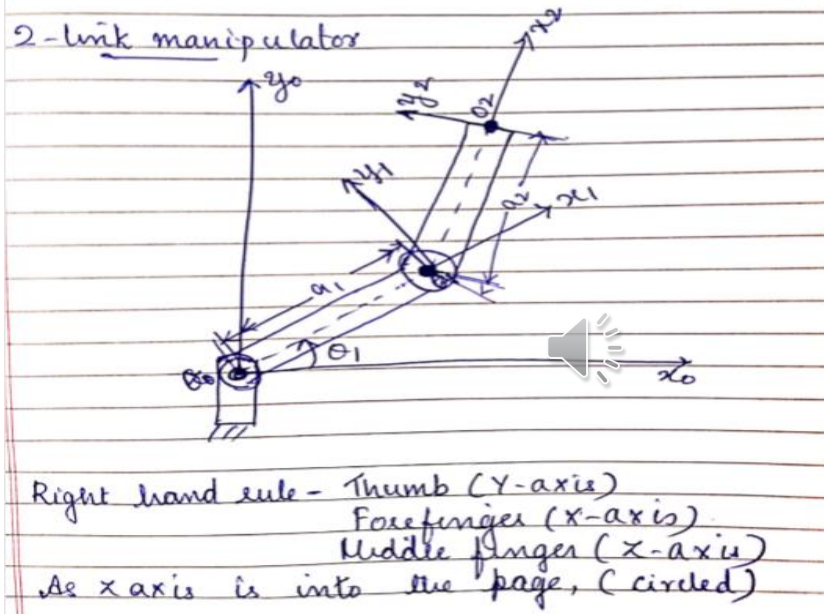 2-link manipulator
y₀
x₂
y₂
O₂
y₁
a₂
x₁
a₁
θ₁
x₀
Right hand rule - Thumb (Y-axis)
Forefinger (X-axis)
Middle finger (Z-axis)
As Z axis is into the page, (circled)